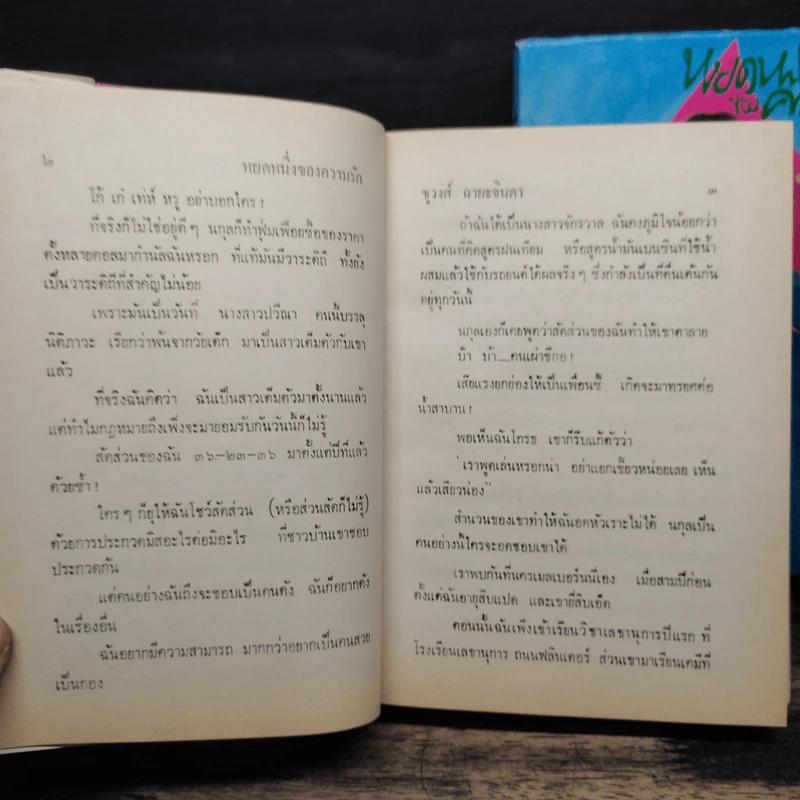 ๒ หยดหนึ่งของความรัก
โก้ เก๋ เท่ห์ หรู อย่าบอกใคร !
ที่จริงก็ไม่ใช่อยู่ดี ๆ นกุลก็ทำฟุ่มเฟือยซื้อของราคา
ตั้งหลายดอลมากำนัลฉันหรอก ที่แท้มันมีวาระดิถี ทั้งยัง
เป็นวาระดิถีที่สำคัญไม่น้อย
เพราะมันเป็นวันที่ นางสาวปวีณา คนนี้บรรลุ
นิติภาวะ เรียกว่าพ้นจากวัยเด็ก มาเป็นสาวเต็มตัวกับเขา
แล้ว
ที่จริงฉันคิดว่า ฉันเป็นสาวเต็มตัวมาตั้งนานแล้ว
แต่ทำไมกฎหมายถึงเพิ่งจะมายอมรับกันวันนี้ก็ไม่รู้
สัดส่วนของฉัน ๓๖–๒๓–๓๖ มาตั้งแต่ปีที่แล้ว
ด้วยซ้ำ !
ใคร ๆ ก็ยุให้ฉันโชว์สัดส่วน (หรือส่วนสัดก็ไม่รู้)
ด้วยการประกวดมิสอะไรต่อมิอะไร ที่ชาวบ้านเขาชอบ
ประกวดกัน
แต่คนอย่างฉันถึงจะชอบเป็นคนดัง ฉันก็อยากดัง
ในเรื่องอื่น
ฉันอยากมีความสามารถ มากกว่าอยากเป็นคนสวย
เป็นกอง
ชูวงศ์ ฉายะจินดา ๓
ถ้าฉันได้เป็นนางสาวจักรวาล ฉันคงภูมิใจน้อยกว่า
เป็นคนที่คิดสูตรฝนเทียม หรือสูตรน้ำมันเบนซินที่ใช้น้ำ
ผสมแล้วใช้กับรถยนต์ได้ผลจริง ๆ ซึ่งกำลังเป็นที่ตื่นเต้นกัน
อยู่ทุกวันนี้
นกุลเองก็เคยพูดว่าสัดส่วนของฉันทำให้เขาตาลาย
บ๊า บ้า....คนเผ่าซีกอ !
เสียแรงยกย่องให้เป็นเพื่อนซี้ เกิดจะมาทรยศต่อ
น้ำสาบาน !
พอเห็นฉันโกรธ เขาก็รีบแก้ตัวว่า
"เราพูดเล่นหรอกน่า อย่าแยกเขี้ยวหน่อยเลย เห็น
แล้วเสียวน่อง"
สำนวนของเขาทำให้ฉันอดหัวเราะไม่ได้ นกุลเป็น
คนอย่างนี้ใครจะอดชอบเขาได้
เราพบกันที่นครเมลเบอร์นนี่เอง เมื่อสามปีก่อน
ตั้งแต่ฉันอายุสิบแปด และเขายี่สิบเอ็ด
ตอนนั้นฉันเพิ่งเข้าเรียนวิชาเลขานุการปีแรก ที่
โรงเรียนเลขานุการ ถนนฟลินเดอร์ ส่วนเขามาเรียนเคมีที่
ของ